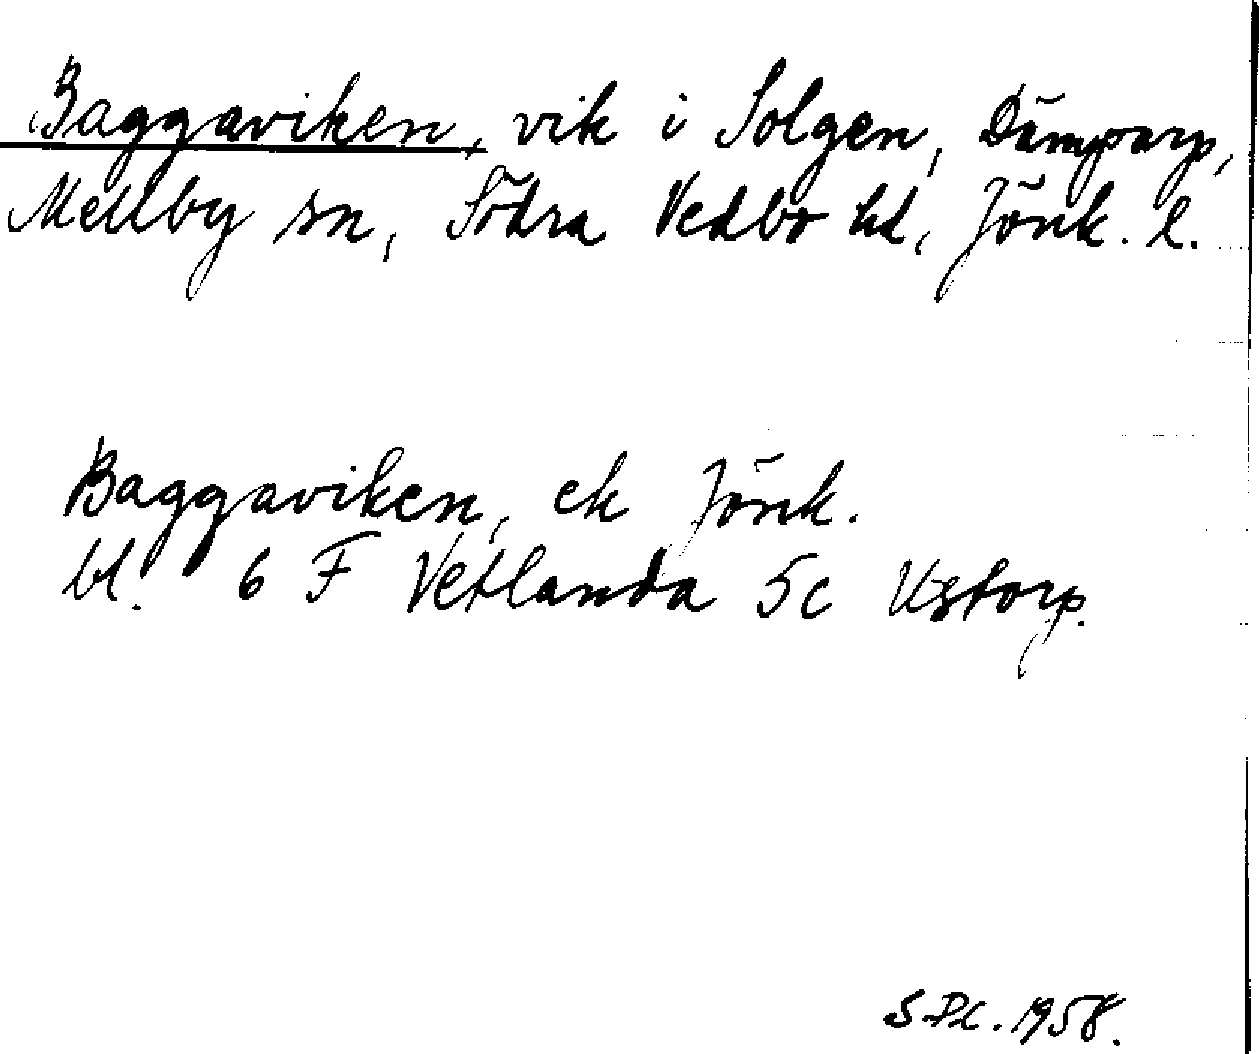 Baggaviken, vik i Solgen, Dämparp,
Mellby sn, Södra Vedbo hd, Jönk. l.
Baggaviken, ek Jönk.
bl. 6 F Vetlanda 5c Ustorp.
1958.